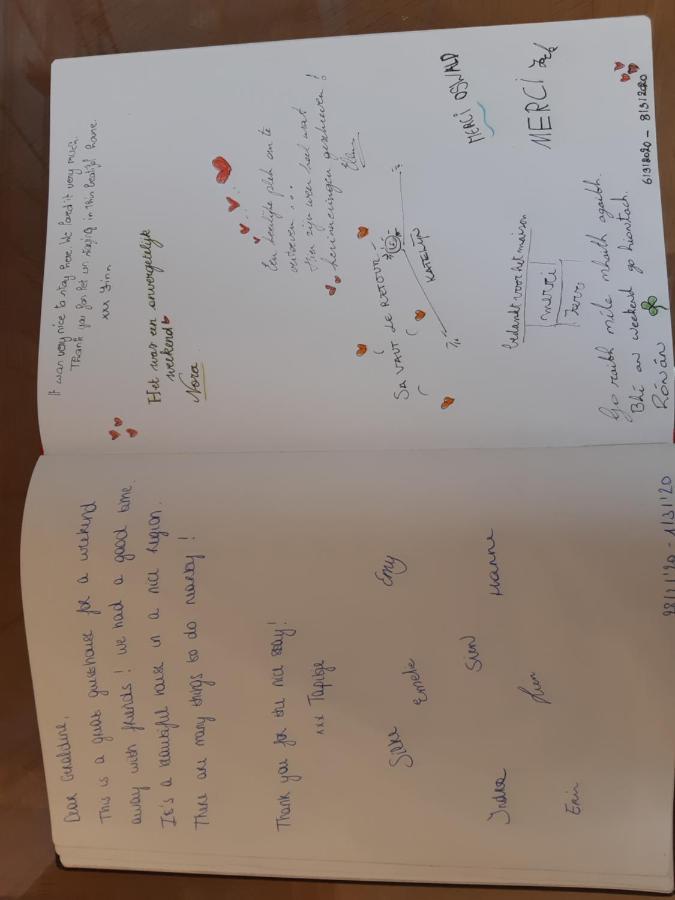 Dear Geraldine,
This is a great guesthouse for a weekend
away with friends! We had a good time.
It's a beautiful house in a nice region.
There are many things to do nearby!
Thank you for the nice stay!
xxx Tapitje
Emy
Emelie
Sien
Hanne
Erin
- 1/3/'20
It was very nice to stay here. We loved it very much.
Thank you for let us staying in this beautifull home.
xxx
Het was een onvergetelijk
weekend
Nora
Een heerlijke plek om te
vertoeven ...
Hier zijn weer heel wat
herinneringen geschreven!
SA VAUT LE RETOUR
KATELIJN
MERCI OSWALD
MERCI
bedankt voor het maison
merci
Go raibh míle mhaith agaibh.
Bhí an weekend go hiontach.
Rónán
6/3/2020 - 8/3/2020